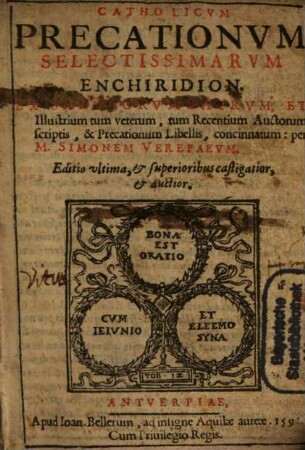 CATHOLICVM
PRECATIONVM
SELECTISSIMARVM
ENCHIRIDION.
Illustrium tum veterum, tum Recentium Auctorum
scriptis, & Precationum Libellis, concinnatum: per
M. SIMONEM VEREPAEVM.
Editio vltima, & superioribus castigatior,
& auctior.
BONA
EST
ORATIO
CVM
IEIVNIO
ET
ELEEMO
SYNA
TOB. 12
ANTVERPIAE,
Apud Ioan. Bellerum, ad insigne Aquilæ aureæ. 159
Cum Priuilegio Regis.
Bayerische
Staatsbibliothek